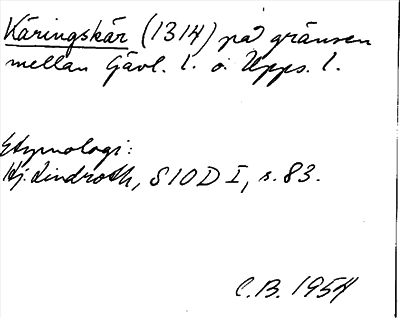 Käringskär (1314) på gränsen
mellan Gävl. l. o. Upps. l.
Etymologi:
Hj. Lindroth, SIOD I, s. 83.
C.B. 1954